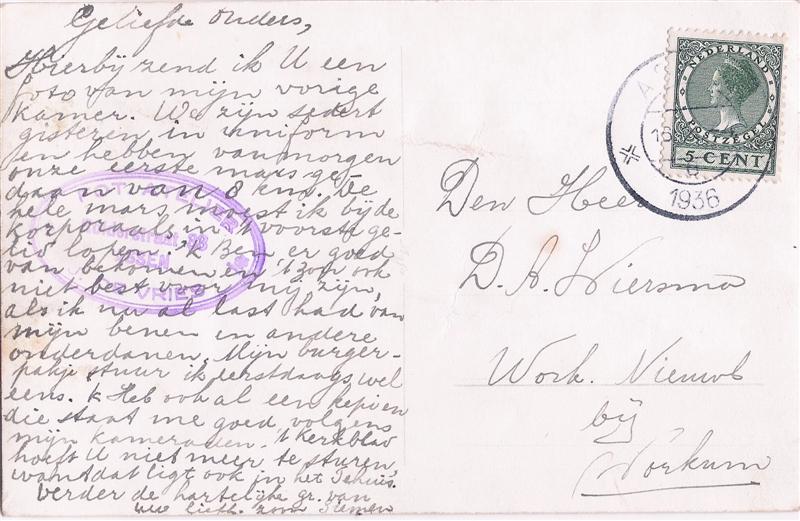 Geliefde Ouders,
Hierbij zend ik U een
foto van mijn vorige
kamer. We zijn sedert
gisteren in uniform
en hebben vanmorgen
onze eerste mars ge-
daan van 8 kms. De
hele mars moest ik bij de
korporaals in 't voorste ge-
lid lopen. 'k Ben er goed
van bekomen en 't zou ook
niet best voor mij zijn,
als ik nu al last had van
mijn benen en andere
onderdanen. Mijn burger-
pakje stuur ik eerstdaags wel
eens. 'k Heb ook al een kepi en
die staat me goed volgens
mijn kameraden. 't Kerkblad
hoeft U niet meer te sturen,
want dat ligt ook in het Tehuis.
Verder de hartelijke gr. van
uw liefh. zoon Siemen
ASSEN
VRIES
NEDERLAND
POSTZEGEL
5 CENT
A
1936
Den Heer
D. A. Wiersma
Work. Nieuwl
bij
Workum